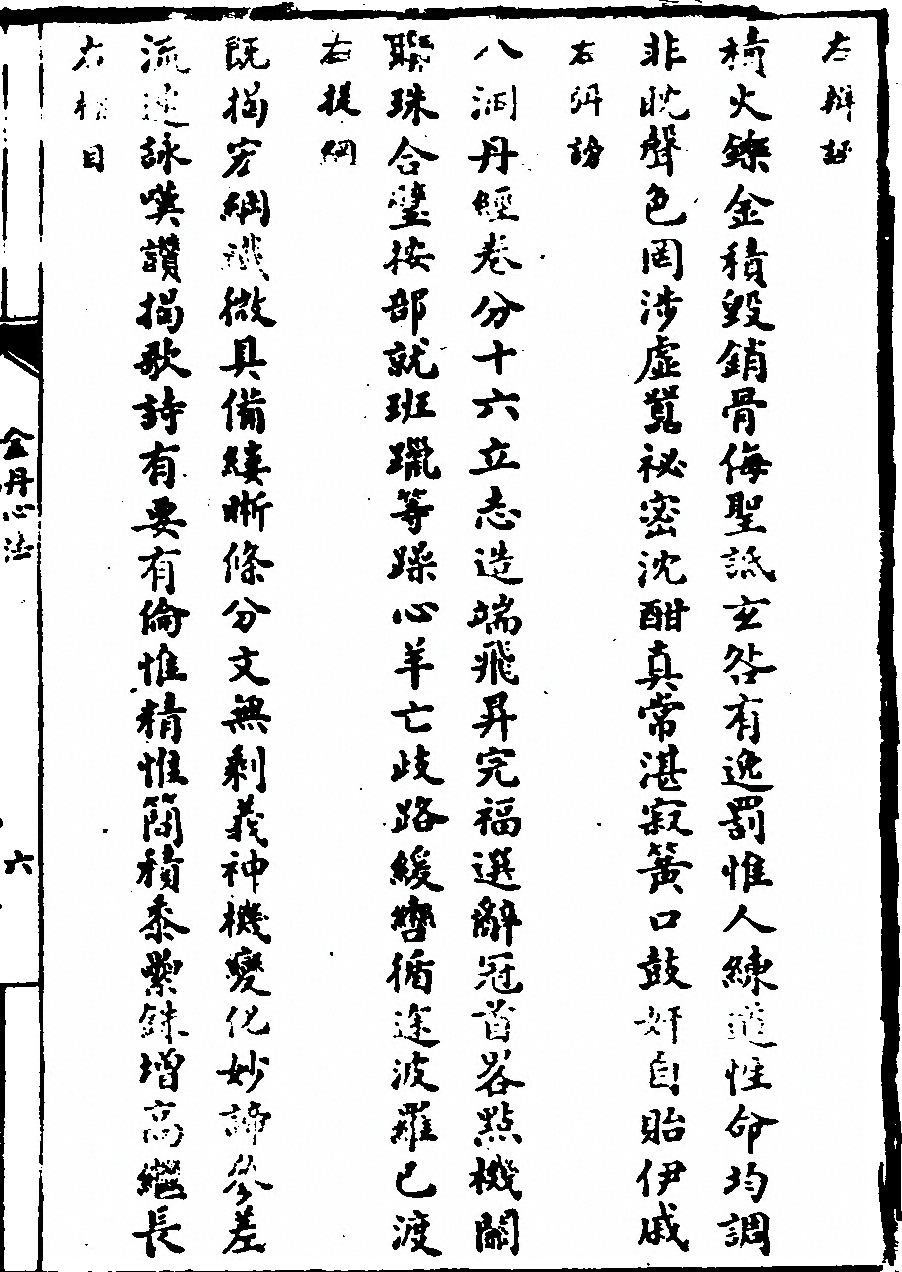 右辨誣
積火鑠金積毀銷骨侮聖詆玄咎有逸罰惟人練道性命均調
非眈聲色罔涉虛囂祕密沈酣真常湛寂簧口鼓奸自貽伊戚
右弭謗
八洞丹經卷分十六立志造端飛昇完福選辭冠首畧點機關
聯珠合璧按部就班躐等躁心羊亡歧路緩轡循途波羅已渡
右提綱
既揭宏綱纖微具備縷晰條分文無剩義神機變化妙諦參差
流連詠嘆讚揭歌詩有要有倫惟精惟簡積黍絫銖增高繼長
右楬目
金丹心法
六